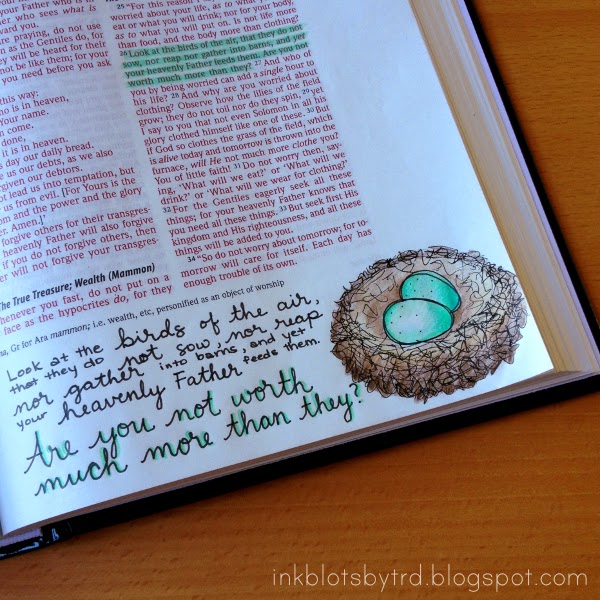 who sees what is
you.
are praying, do not use
as the Gentiles do, for
will be heard for their
not be like them; for your
you need before you ask
this way:
is in heaven,
Your name.
come.
done,
it is in heaven.
day our daily bread.
our debts, as we also
our debtors.
lead us into temptation, but
us from evil. [For Yours is the
and the power and the glory
Amen.]
forgive others for their transgres-
heavenly Father will also forgive
if you do not forgive others, then
will not forgive your transgres-
The True Treasure; Wealth (Mammon)
whenever you fast, do not put on a
face as the hypocrites do, for they
25 "For this reason I say to you, do not be
worried about your life, as to what you will
eat or what you will drink; nor for your body,
as to what you will put on. Is not life more
than food, and the body more than clothing?
26 Look at the birds of the air, that they do not
sow, nor reap nor gather into barns, and yet
your heavenly Father feeds them. Are you not
worth much more than they? 27 And who of
you by being worried can add a single hour to
his life? 28 And why are you worried about
clothing? Observe how the lilies of the field
grow; they do not toil nor do they spin, 29 yet
I say to you that not even Solomon in all his
glory clothed himself like one of these. 30 But
if God so clothes the grass of the field, which
is alive today and tomorrow is thrown into the
furnace, will He not much more clothe you?
You of little faith! 31 Do not worry then, say-
ing, 'What will we eat?' or 'What will we
drink?' or 'What will we wear for clothing?'
32 For the Gentiles eagerly seek all these
things; for your heavenly Father knows that
you need all these things. 33 But seek first His
kingdom and His righteousness, and all these
things will be added to you.
34 "So do not worry about tomorrow; for to-
morrow will care for itself. Each day has
enough trouble of its own.
Gr for Ara mammon; i.e. wealth, etc, personified as an object of worship
Look at the birds of the air,
that they do not sow, nor reap
nor gather into barns, and yet
your heavenly Father feeds them.
Are you not worth
much more than they?
inkblotsbytrd.blogspot.com